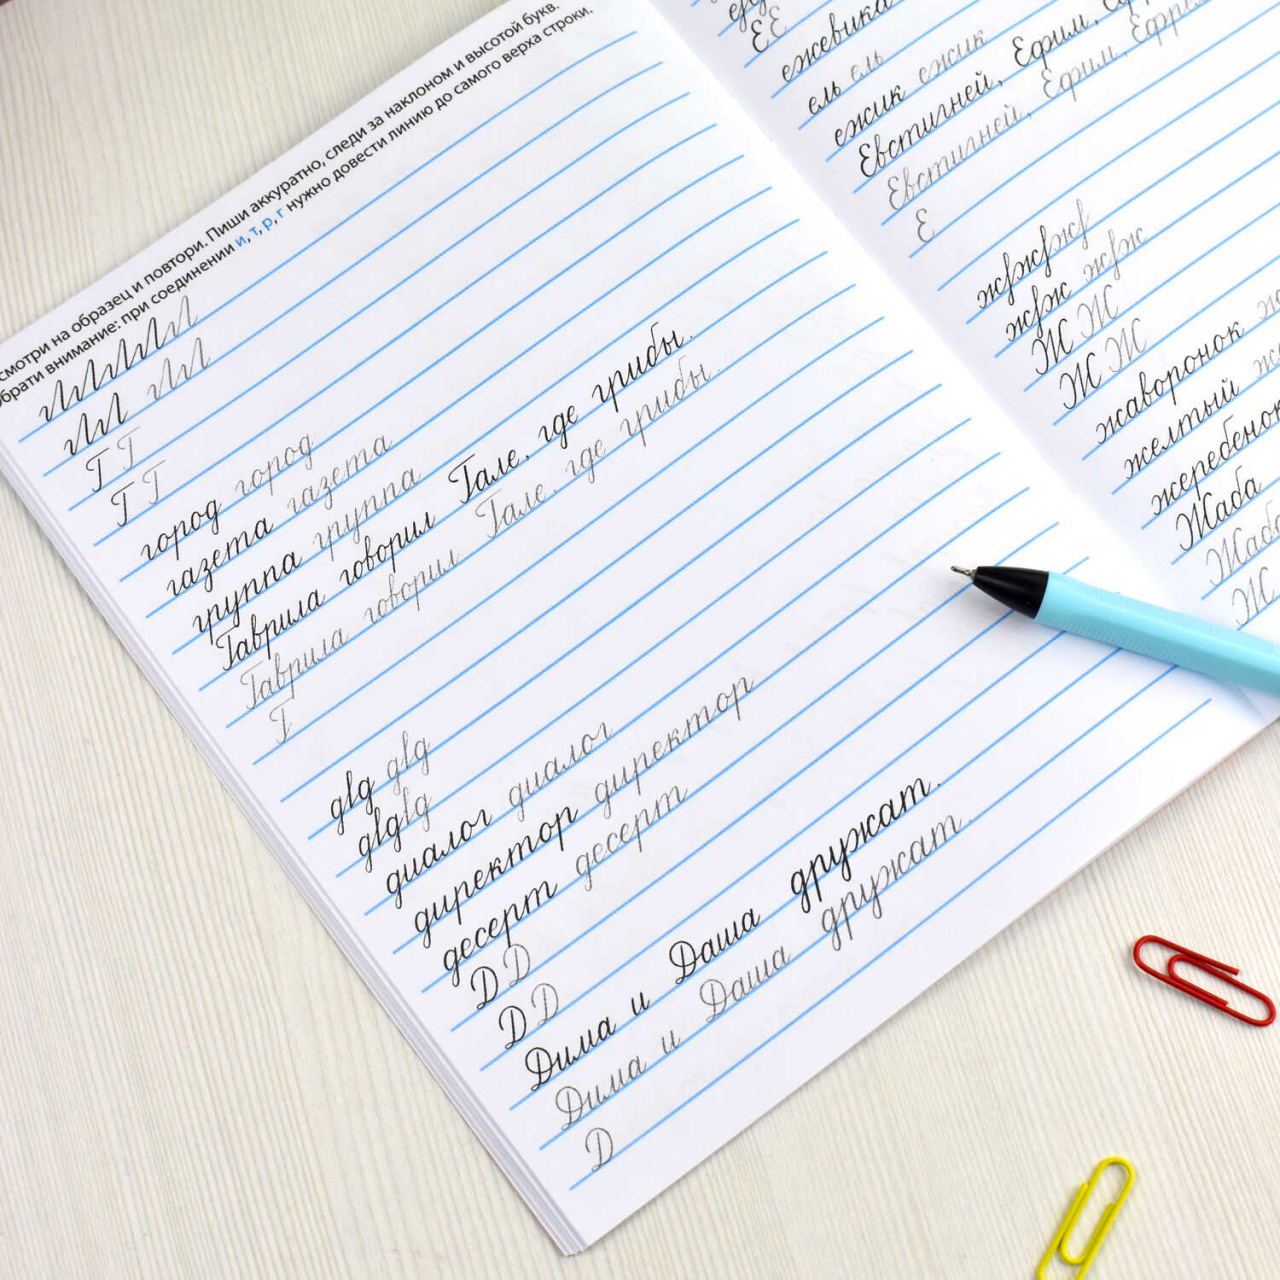 смотри на образец и повтори. Пиши аккуратно, следи за наклоном и высотой букв.
обрати внимание: при соединении и, т, р, г нужно довести линию до самого верха строки.
гГ Г
Г Г
город город
газета газета
группа группа
Гаврила говорил Гале, где грибы.
Гаврила говорил Гале, где грибы.
Г
д д д д
д д д д
диалог диалог
директор директор
десерт десерт
Д Д
Д Д
Дима и Даша дружат.
Дима и Даша дружат.
Д
Е Е
ежевика
ель ель
ежик ежик
Евстигней, Ефим,
Евстигней, Ефим,
Е
ж ж ж ж
ж ж ж ж
Ж Ж
Ж Ж
жаворонок
желтый
жеребенок
Жаба
Жаба
Ж